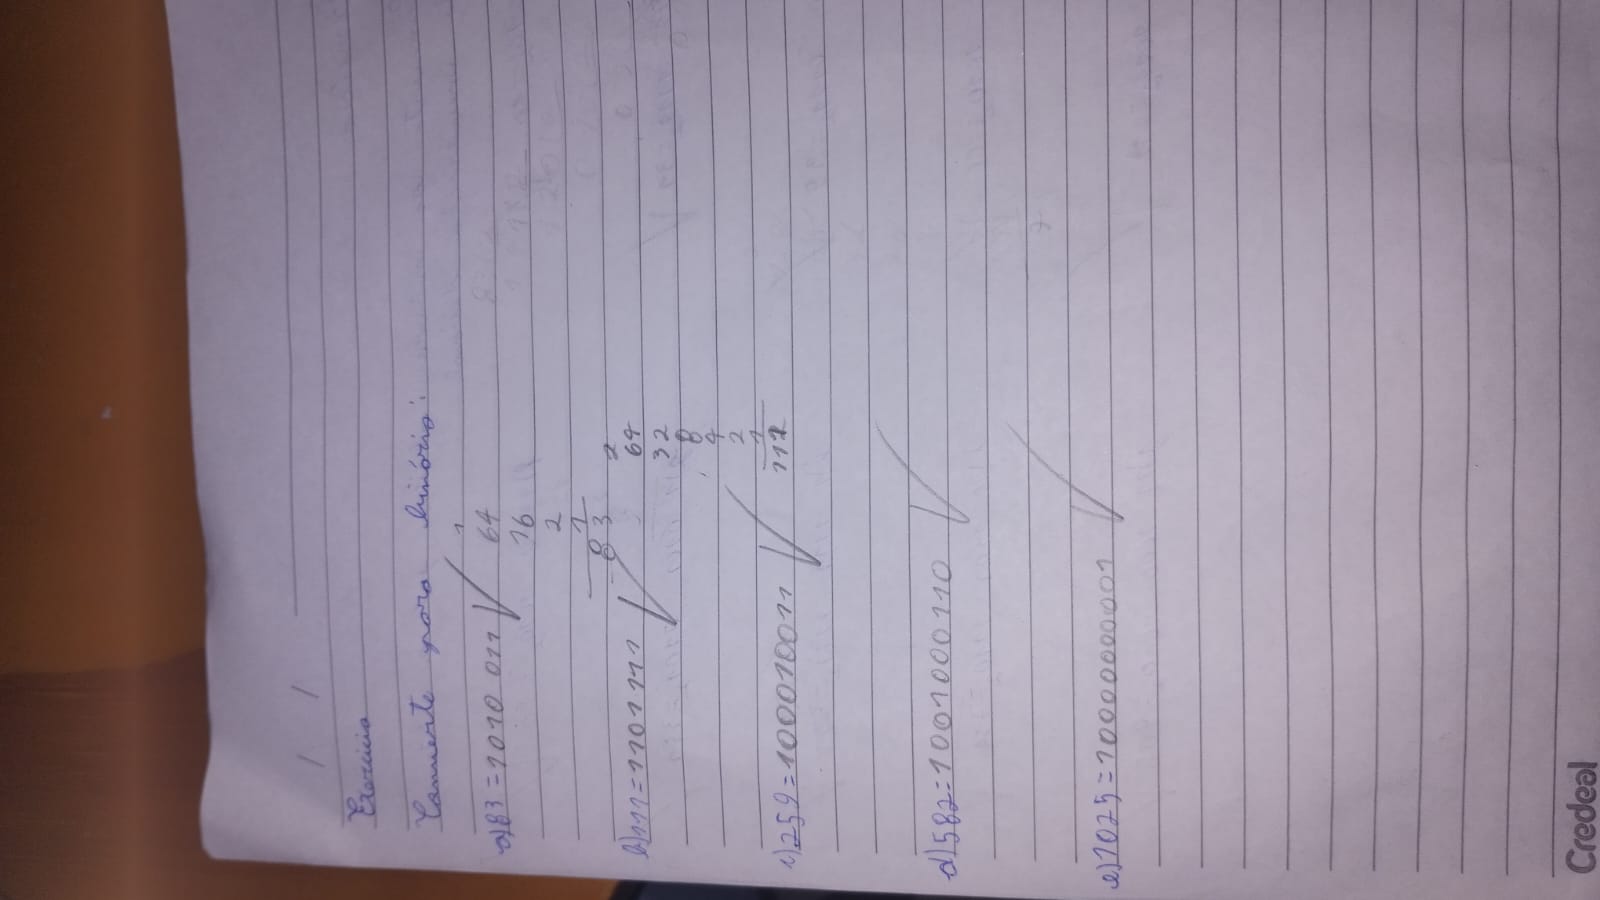 Exercício
Converte para binário:
a) 83 = 1010 011
1
64
16
2
1
83
b) 111 = 1101 111
2
64
32
8
4
2
1
111
c) 259 = 1000010011
d) 582 = 1001000110
e) 1025 = 10000000001
Credeal